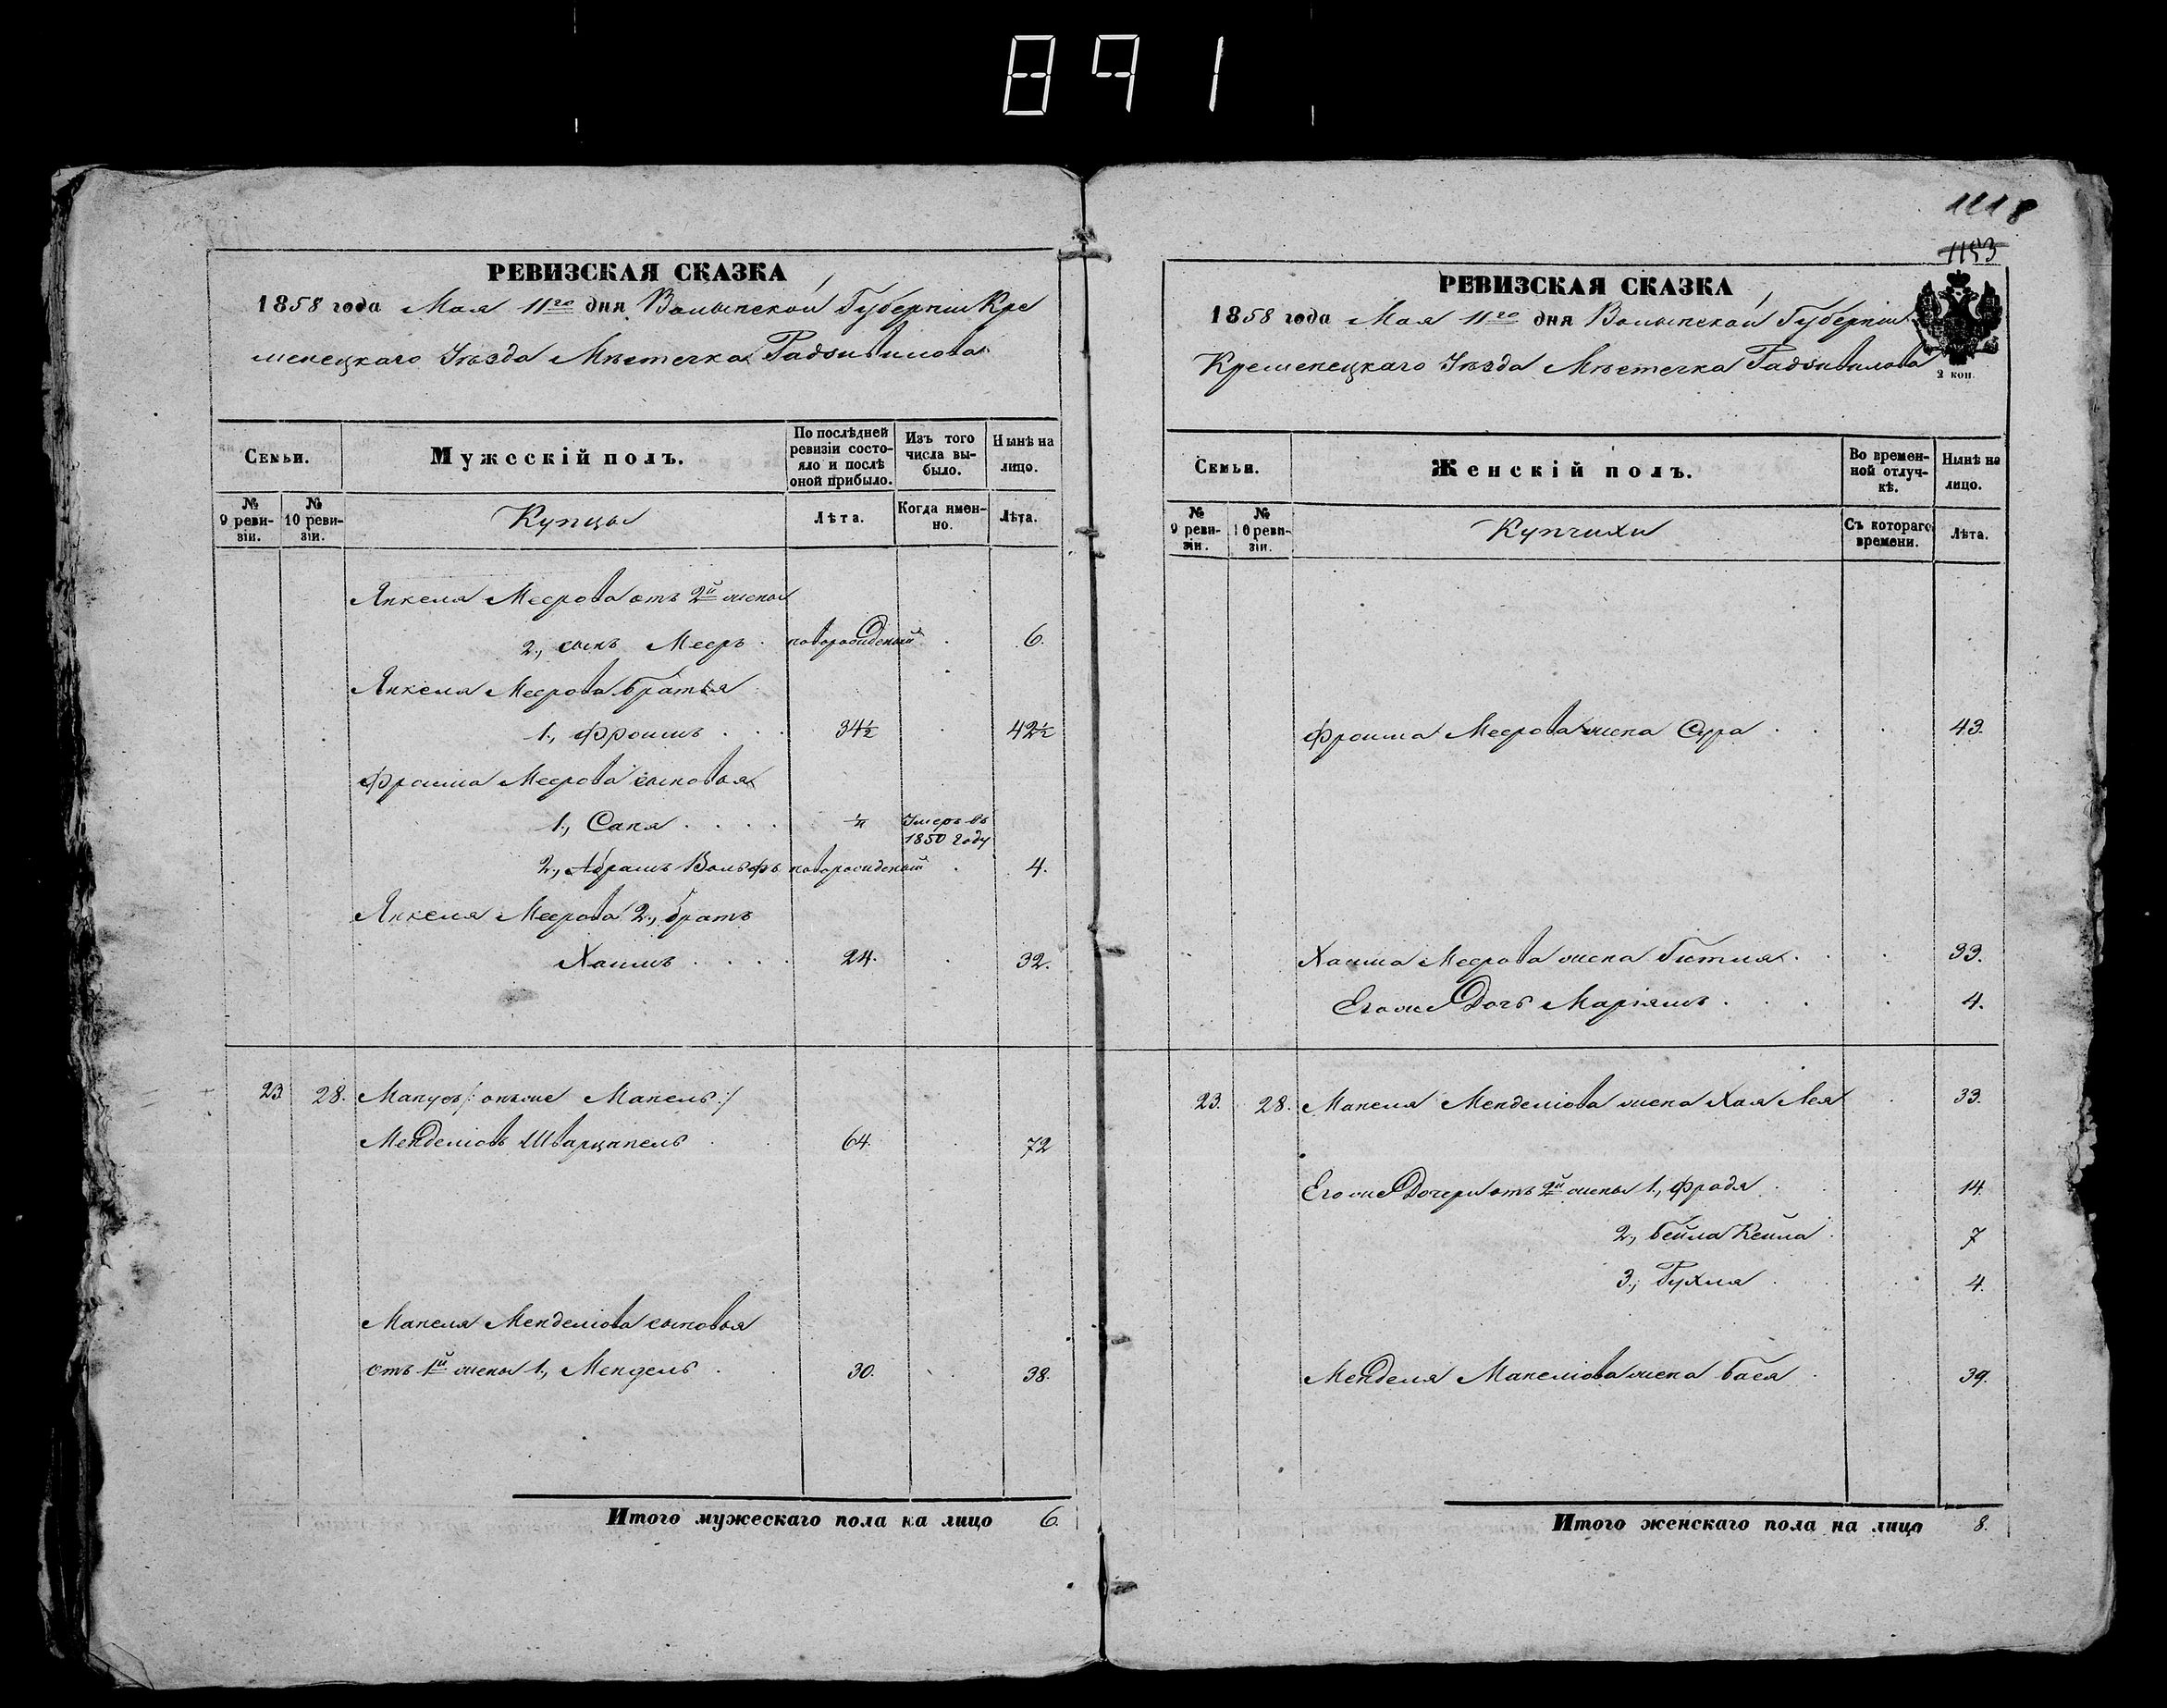 891
1118
1153
РЕВИЗСКАЯ СКАЗКА
1858 года Мая 11го дня Волынской Губерніи Кре
менецкаго Уѣзда Мѣстечка Радзивилова
Семьи.
Мужескій полъ.
По послѣдней ревизіи состояло и послѣ оной прибыло.
Изъ того числа выбыло.
Нынѣ на лицо.
№ 9 ревизіи.
№ 10 ревизіи.
Купцы
Лѣта.
Когда именно.
Лѣта.
Янкеля Меерова отъ 2й жены
2., сынъ Мееръ новорожденый 6.
Янкеля Меерова братья
1., Фроимъ 34½ 42½
Фроима Меерова сыновья
1., Саня Умеръ въ
1850 году
2., Абрамъ Вольфъ новорожденый 4.
Янкеля Меерова 2., братъ
Хаимъ 24. 32.
23 28. Манусъ /: онъже Манель :/
Менделіовъ Шварцапель 64. 72
Манеля Менделіова сыновья
отъ 1й жены 1., Мендель 30. 38.
Итого мужескаго пола на лицо 6.
РЕВИЗСКАЯ СКАЗКА
1858 года Мая 11го дня Волынской Губерніи
Кременецкаго Уѣзда Мѣстечка Радзивилова
2 коп.
Семьи.
Женскій полъ.
Во временной отлучкѣ.
Нынѣ на лицо.
№ 9 ревизіи.
№ 10 ревизіи.
Купчихи
Съ котораго времени.
Лѣта.
Фроима Меерова жена Сура 43.
Хаима Меерова жена Гитля 33.
Егоже Дочь Маріямъ 4.
23. 28. Манеля Менделіова жена Хая Лея 33.
Егоже Дочери отъ 2й жены 1., Фрадя 14.
2., Бейла Кейла 7
3., Рухля 4.
Менделя Манеліова жена Бася 39.
Итого женскаго пола на лицо 8.